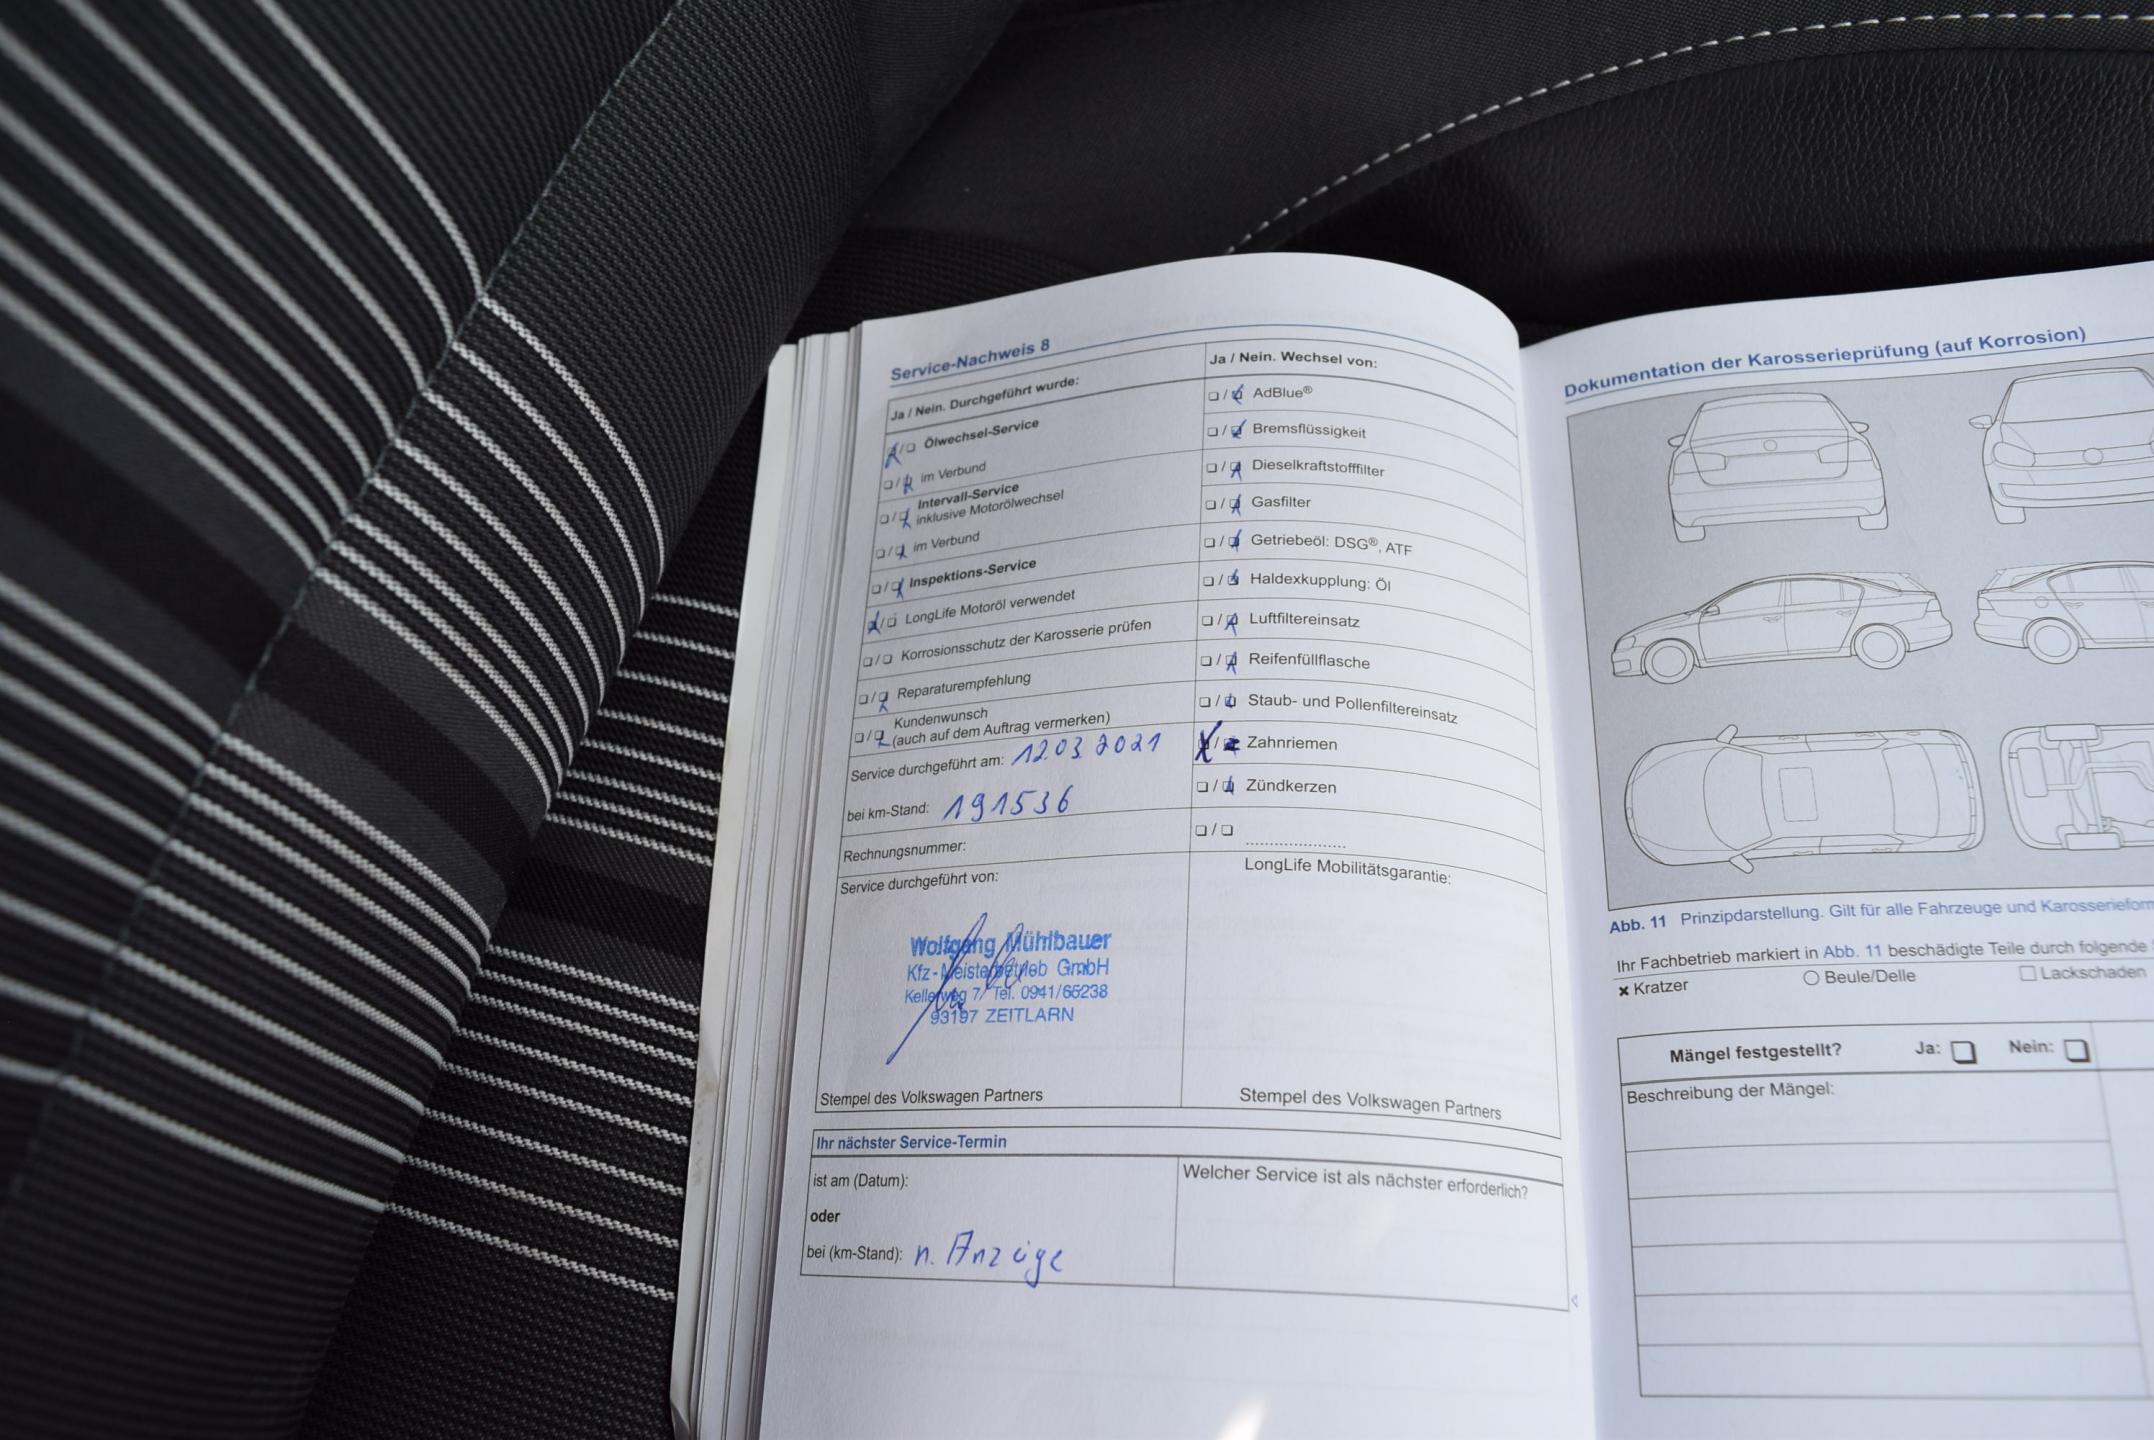 Service-Nachweis 8
Ja / Nein. Durchgeführt wurde:
Ölwechsel-Service
im Verbund
Intervall-Service
inklusive Motorölwechsel
im Verbund
Inspektions-Service
LongLife Motoröl verwendet
Korrosionsschutz der Karosserie prüfen
Reparaturempfehlung
Kundenwunsch
(auch auf dem Auftrag vermerken)
Service durchgeführt am: 12.03.2021
bei km-Stand: 191536
Rechnungsnummer:
Service durchgeführt von:
Wolfgang Mühlbauer
Kfz-Meisterbetrieb GmbH
Kellerweg 7/ Tel. 0941/65238
93197 ZEITLARN
Stempel des Volkswagen Partners
Ja / Nein. Wechsel von:
AdBlue®
Bremsflüssigkeit
Dieselkraftstofffilter
Gasfilter
Getriebeöl: DSG®, ATF
Haldexkupplung: Öl
Luftfiltereinsatz
Reifenfüllflasche
Staub- und Pollenfiltereinsatz
Zahnriemen
Zündkerzen
LongLife Mobilitätsgarantie:
Stempel des Volkswagen Partners
Ihr nächster Service-Termin
ist am (Datum):
oder
bei (km-Stand): n. Anzeige
Welcher Service ist als nächster erforderlich?
Dokumentation der Karosserieprüfung (auf Korrosion)
Abb. 11 Prinzipdarstellung. Gilt für alle Fahrzeuge und Karosserieform
Ihr Fachbetrieb markiert in Abb. 11 beschädigte Teile durch folgende
Kratzer Beule/Delle Lackschaden
Mängel festgestellt? Ja: Nein:
Beschreibung der Mängel: